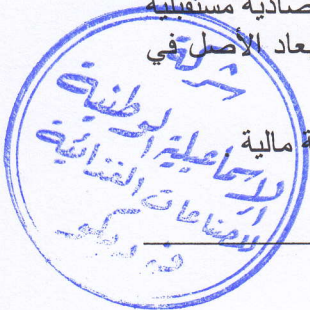 صادية مستقبلية
عاد الأصل في
ة مالية
شركة
الإسماعيلية الوطنية
للصناعات الغذائية